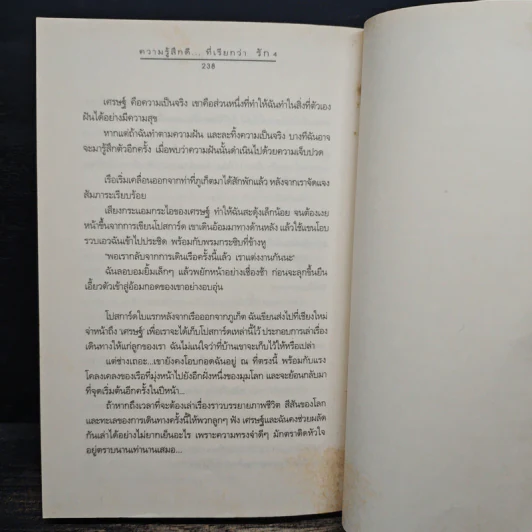 ความรู้สึกดี... ที่เรียกว่า รัก ๔
238
เศรษฐ์ คือความเป็นจริง เขาคือส่วนหนึ่งที่ทำให้ฉันทำในสิ่งที่ตัวเอง
ฝันได้อย่างมีความสุข
หากแต่ถ้าฉันทำตามความฝัน และละทิ้งความเป็นจริง บางทีฉันอาจ
จะมารู้สึกตัวอีกครั้ง เมื่อพบว่าความฝันนั้นดำเนินไปด้วยความเจ็บปวด
เรือเริ่มเคลื่อนออกจากท่าที่ภูเก็ตมาได้สักพักแล้ว หลังจากเราจัดแจง
สัมภาระเรียบร้อย
เสียงกระแอมกระไอของเศรษฐ์ ทำให้ฉันสะดุ้งเล็กน้อย จนต้องเงย
หน้าขึ้นจากการเขียนโปสการ์ด เขาเดินอ้อมมาทางด้านหลัง แล้วใช้แขนโอบ
รวบเอวฉันเข้าไปประชิด พร้อมกับพรมกระซิบที่ข้างหู
'พอเรากลับจากการเดินเรือครั้งนี้แล้ว เราแต่งงานกันนะ'
ฉันลอบอมยิ้มเล็กๆ แล้วพยักหน้าอย่างเชื่องช้า ก่อนจะลุกขึ้นยืน
เอี้ยวตัวเข้าสู่อ้อมกอดของเขาอย่างอบอุ่น
โปสการ์ดใบแรกหลังจากเรือออกจากภูเก็ต ฉันเขียนส่งไปที่เชียงใหม่
จ่าหน้าถึง 'เศรษฐ์' เพื่อเราจะได้เก็บโปสการ์ดเหล่านี้ไว้ ประกอบการเล่าเรื่อง
เดินทางให้แก่ลูกของเรา ฉันไม่แน่ใจว่าที่บ้านเขาจะเก็บไว้ให้หรือเปล่า
แต่ช่างเถอะ...เขายังคงโอบกอดฉันอยู่ ณ ที่ตรงนี้ พร้อมกับแรง
โคลงเคลงของเรือที่มุ่งหน้าไปยังอีกฝั่งหนึ่งของมุมโลก และจะย้อนกลับมา
ที่จุดเริ่มต้นอีกครั้งในปีหน้า...
ถ้าหากถึงเวลาที่จะต้องเล่าเรื่องราวบรรยายภาพชีวิต สีสันของโลก
และทะเลของการเดินทางครั้งนี้ให้พวกลูกๆ ฟัง เศรษฐ์และฉันคงช่วยผลัด
กันเล่าได้อย่างไม่ยากเย็นอะไร เพราะความทรงจำดีๆ มักตราติดหัวใจ
อยู่ตราบนานเท่านานเสมอ...